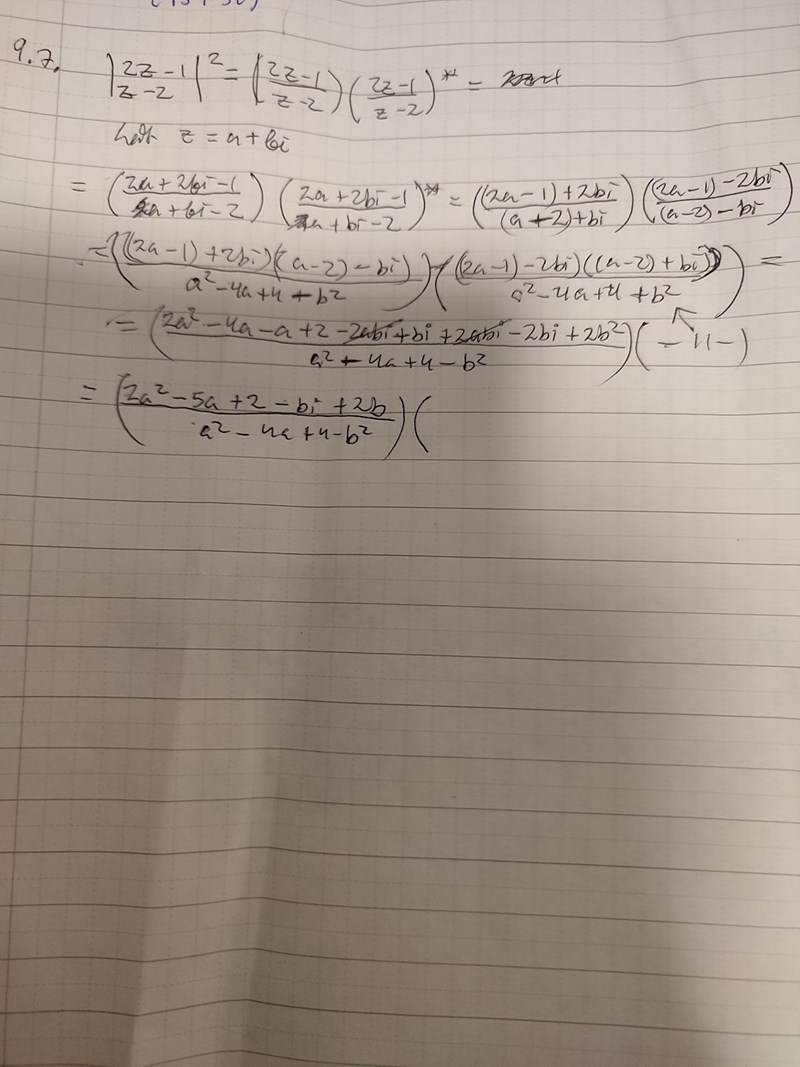 9.7. |2z-1/z-2|² = (2z-1/z-2)(2z-1/z-2)* =
z = a+bi
= (2a+2bi-1/a+bi-2) (2a+2bi-1/a+bi-2)* = ((2a-1)+2bi/(a-2)+bi) ((2a-1)-2bi/(a-2)-bi)
= (((2a-1)+2bi)((a-2)-bi)/a²-4a+4+b²) ((2a-1)-2bi)((a-2)+bi)/a²-4a+4+b²) =
= (2a²-4a-a+2-2abi+bi+2abi-2bi+2b²/a²-4a+4-b²)(-11-)
= (2a²-5a+2-bi+2b/a²-4a+4-b²)(